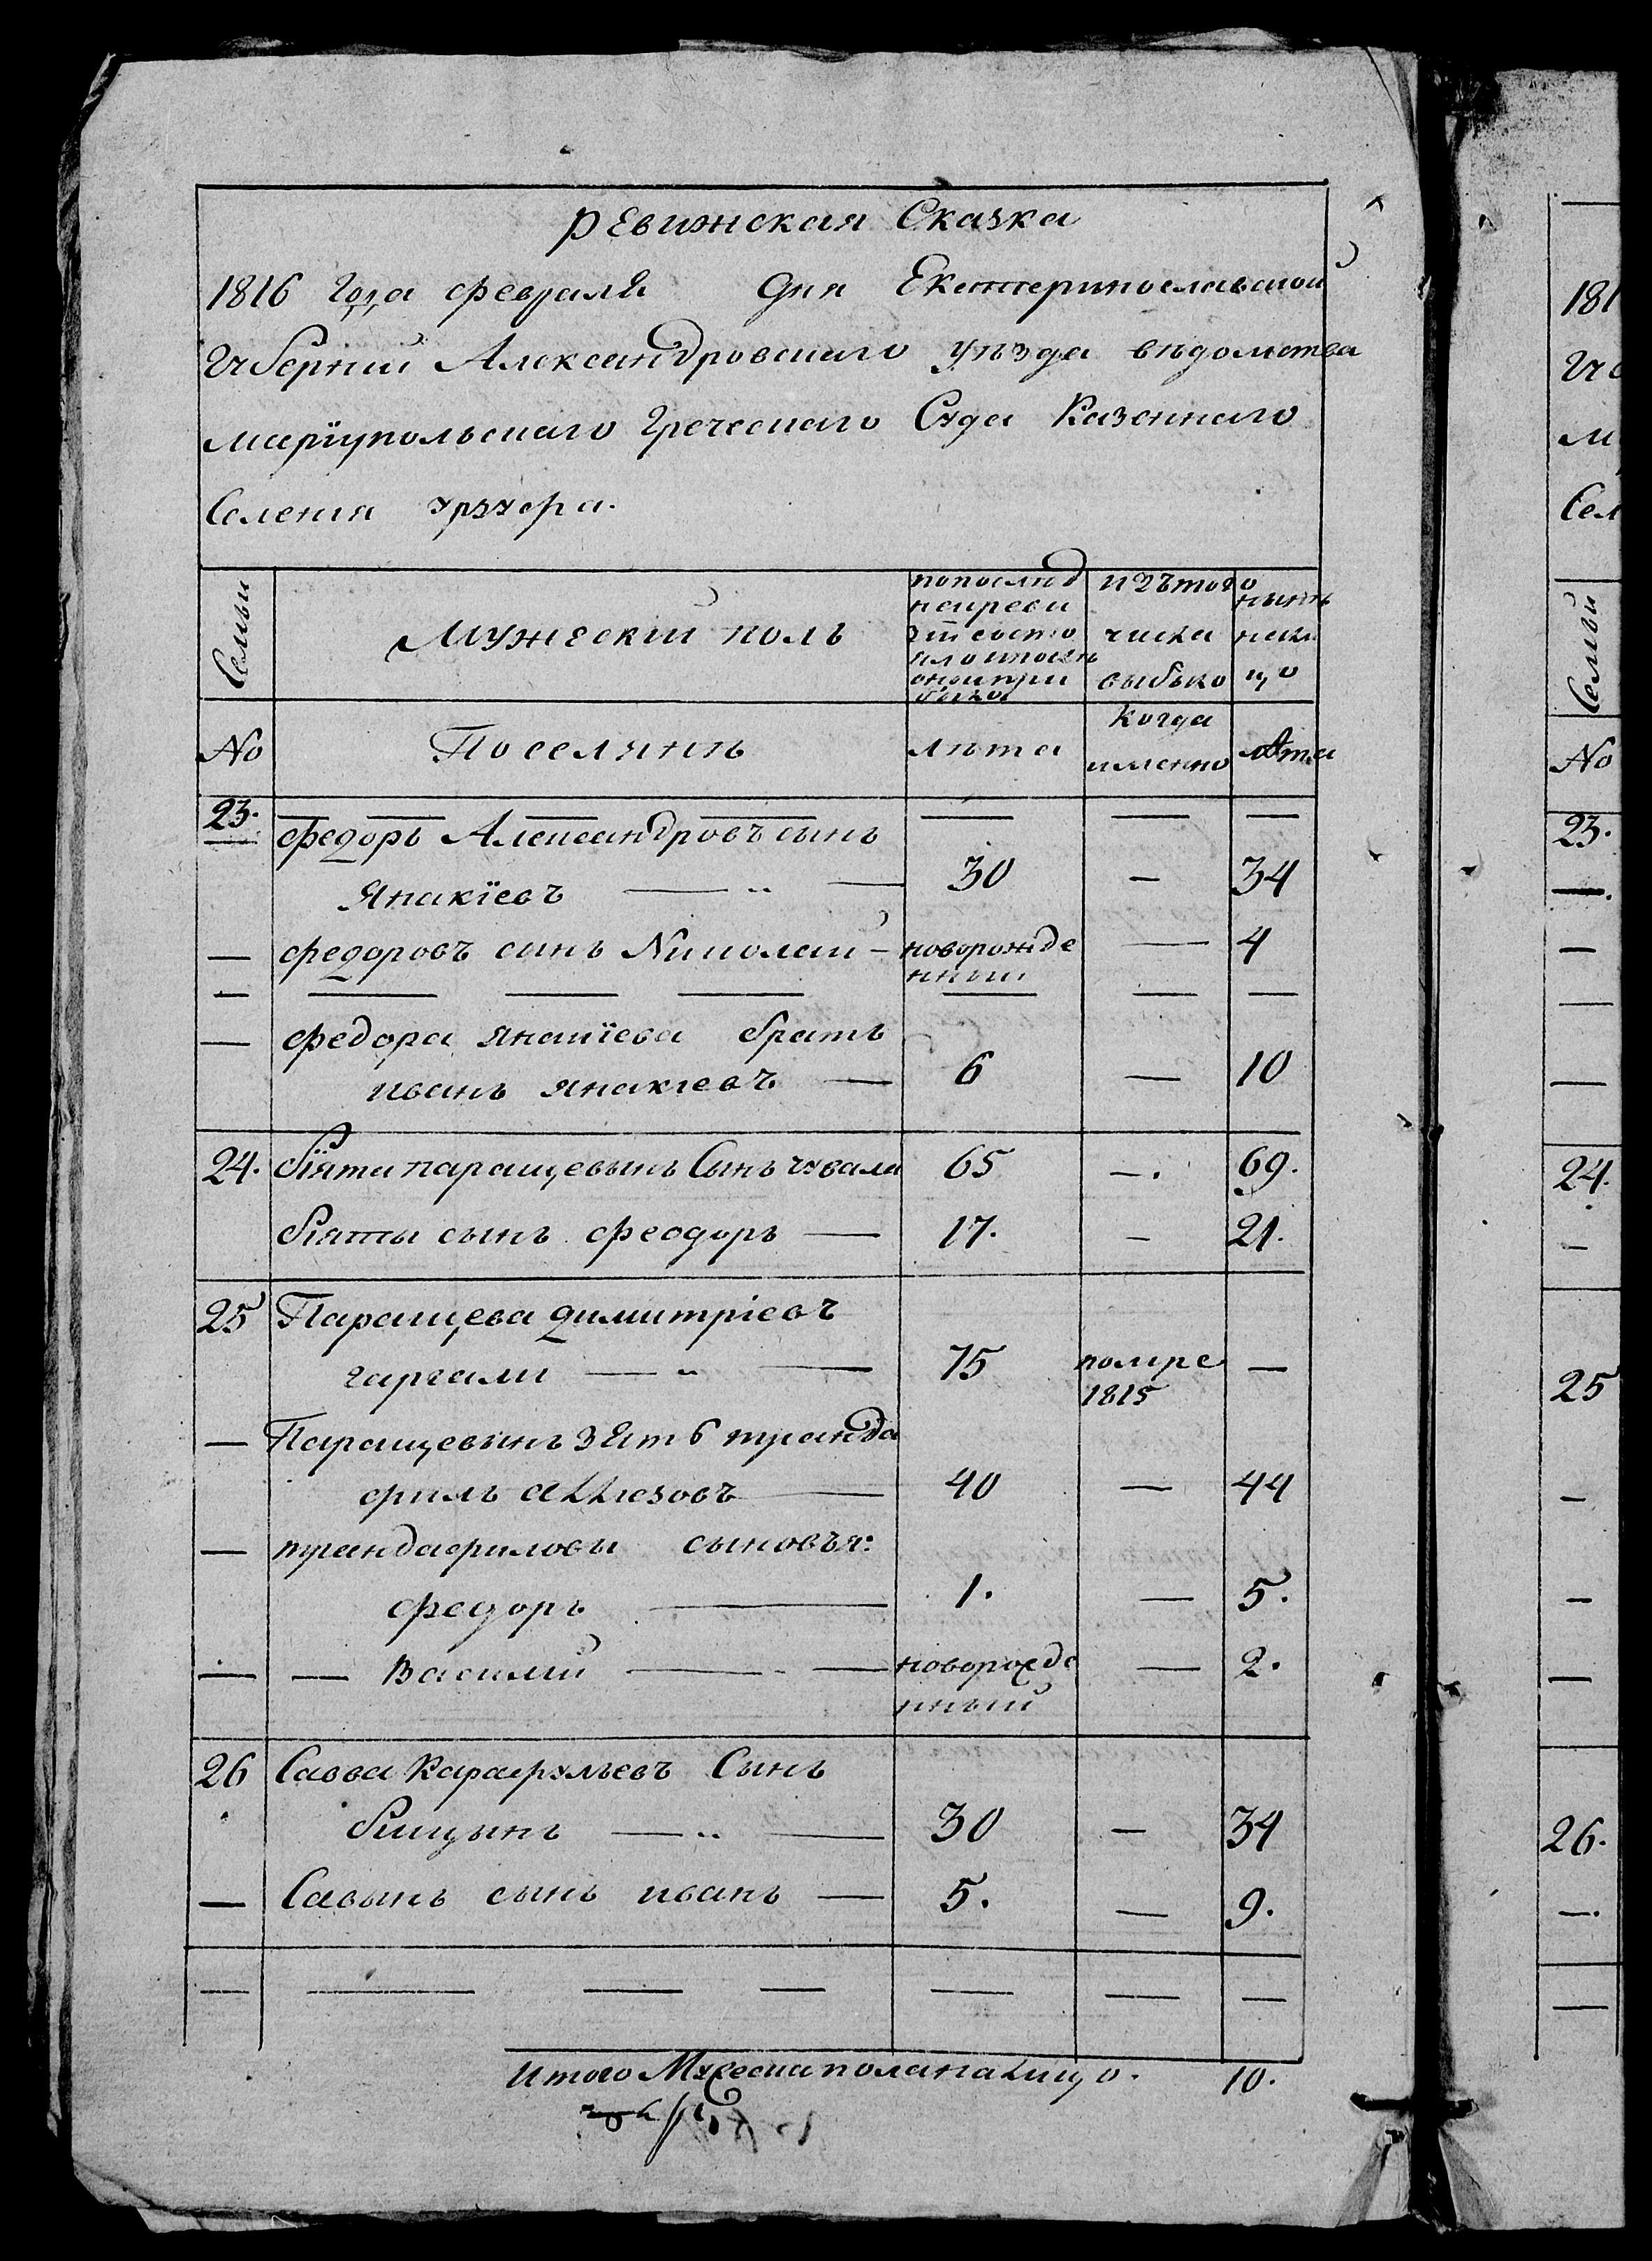 Ревижская Сказка
1816 года февраля дня Екатеринославской
Губернии Александровскаго уѣзда вѣдомства
маріупольскаго Греческаго Суда Казеннаго
Селения урзуфа.
Семьи
Мужеский полъ
по послѣд
ней реви
зіи состо
яло и после
оной при
было
изъ того
числа
выбыло
нынѣ
нали
цо
No
Поселянѣ
лѣта
когда
именно
лѣта
23. федоръ Александровъ сынъ
Янакіевъ — 30 — 34
— федоровъ сынъ Николай — новорожде — 4
нный
— федора янакіева братъ
иванъ янакіевъ — 6 — 10
24. біяти паращевынъ Сынъ чувала 65 —. 69.
біяты сынъ феодоръ — 17. — 21.
25 Паращева димитріевъ
чаргали — 75 помре —
1815
— Паращевынъ зять транда
филъ — 40 — 44
— трандафиловы сыновья:
федоръ — 1. — 5.
— — Василий — новорожде — 2.
нный
26 Савва Карафульевъ Сынъ
бицынъ — 30 — 34
— Савынъ сынъ иванъ — 5. — 9.
Итого Мужеска пола на лицо. 10.
181
Гу
м
Сел
Семьи
No
23.
24.
25
26.